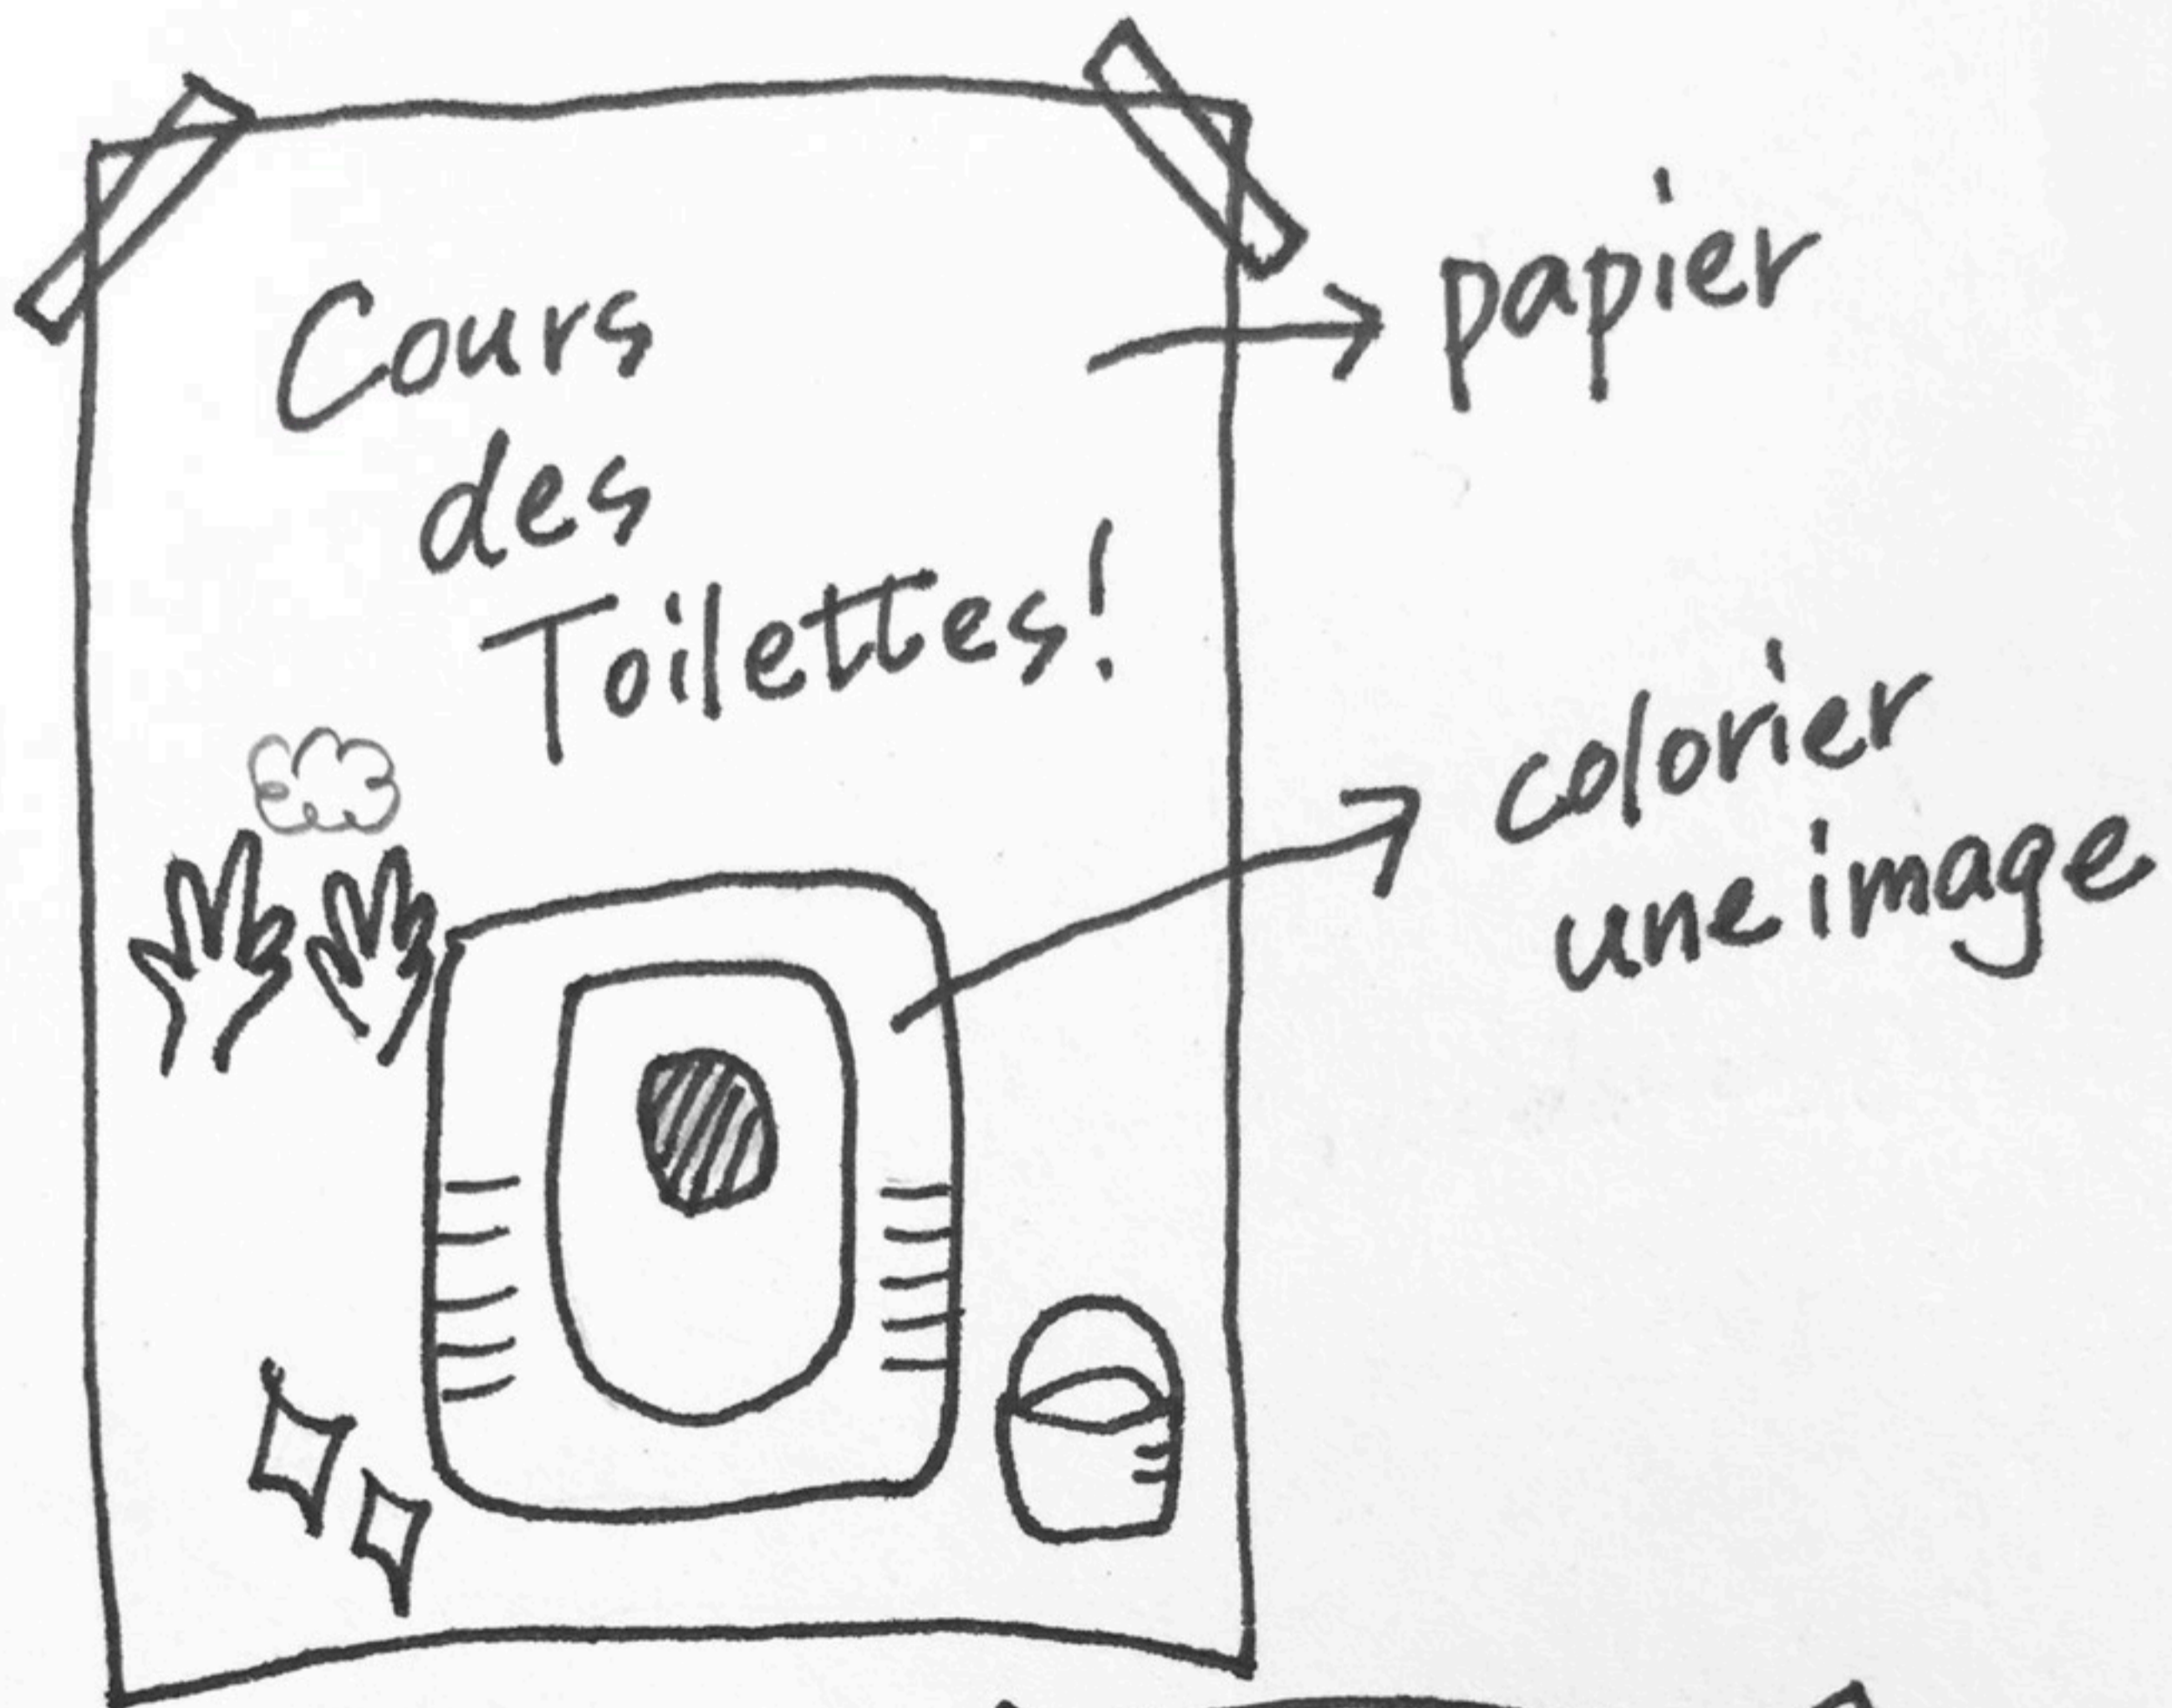 Cours
des
Toilettes!
papier
colorier
une image